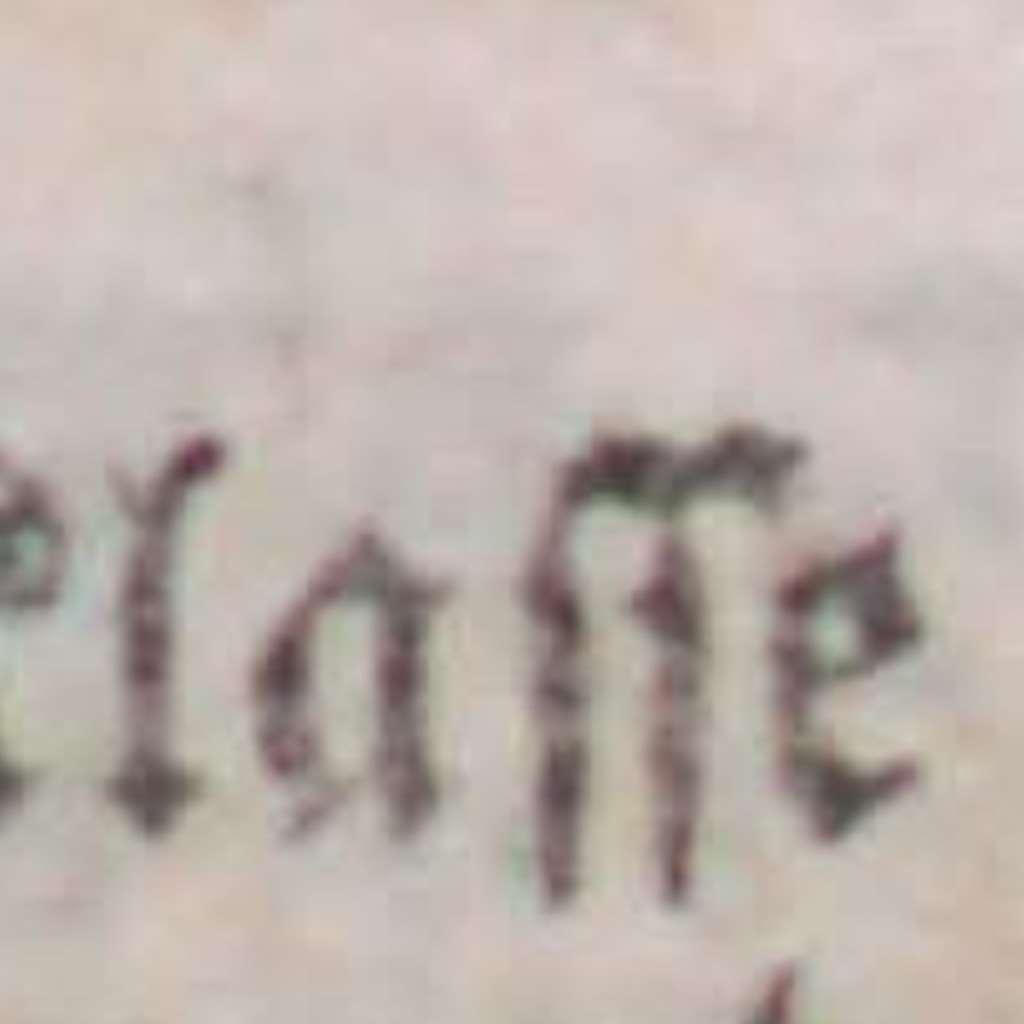 elaſſe